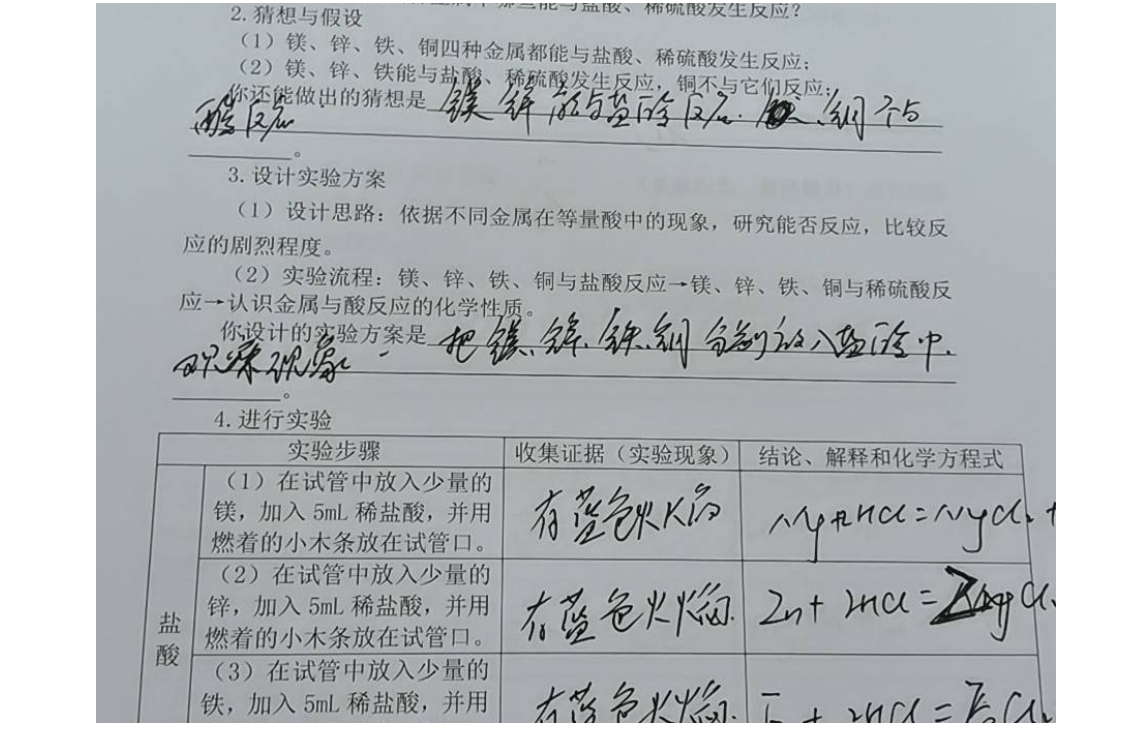 金属中哪些能与盐酸、稀硫酸发生反应?
2.猜想与假设
(1)镁、锌、铁、铜四种金属都能与盐酸、稀硫酸发生反应;
(2)镁、锌、铁能与盐酸、稀硫酸发生反应,铜不与它们反应;
你还能做出的猜想是 镁 锌 能与盐酸反应. 铜不与
酸反应
。
3.设计实验方案
(1)设计思路:依据不同金属在等量酸中的现象,研究能否反应,比较反
应的剧烈程度。
(2)实验流程:镁、锌、铁、铜与盐酸反应→镁、锌、铁、铜与稀硫酸反
应→认识金属与酸反应的化学性质。
你设计的实验方案是 把镁、锌、铁、铜分别放入盐酸中.
观察现象
。
4.进行实验
实验步骤 收集证据(实验现象) 结论、解释和化学方程式
盐酸
(1)在试管中放入少量的
镁,加入 5mL 稀盐酸,并用
燃着的小木条放在试管口。
有蓝色火焰
Mg+2HCl=MgCl₂+
(2)在试管中放入少量的
锌,加入 5mL 稀盐酸,并用
燃着的小木条放在试管口。
有蓝色火焰.
Zn+2HCl=
(3)在试管中放入少量的
铁,加入 5mL 稀盐酸,并用
有蓝色火焰.
+2HCl=FeCl₂